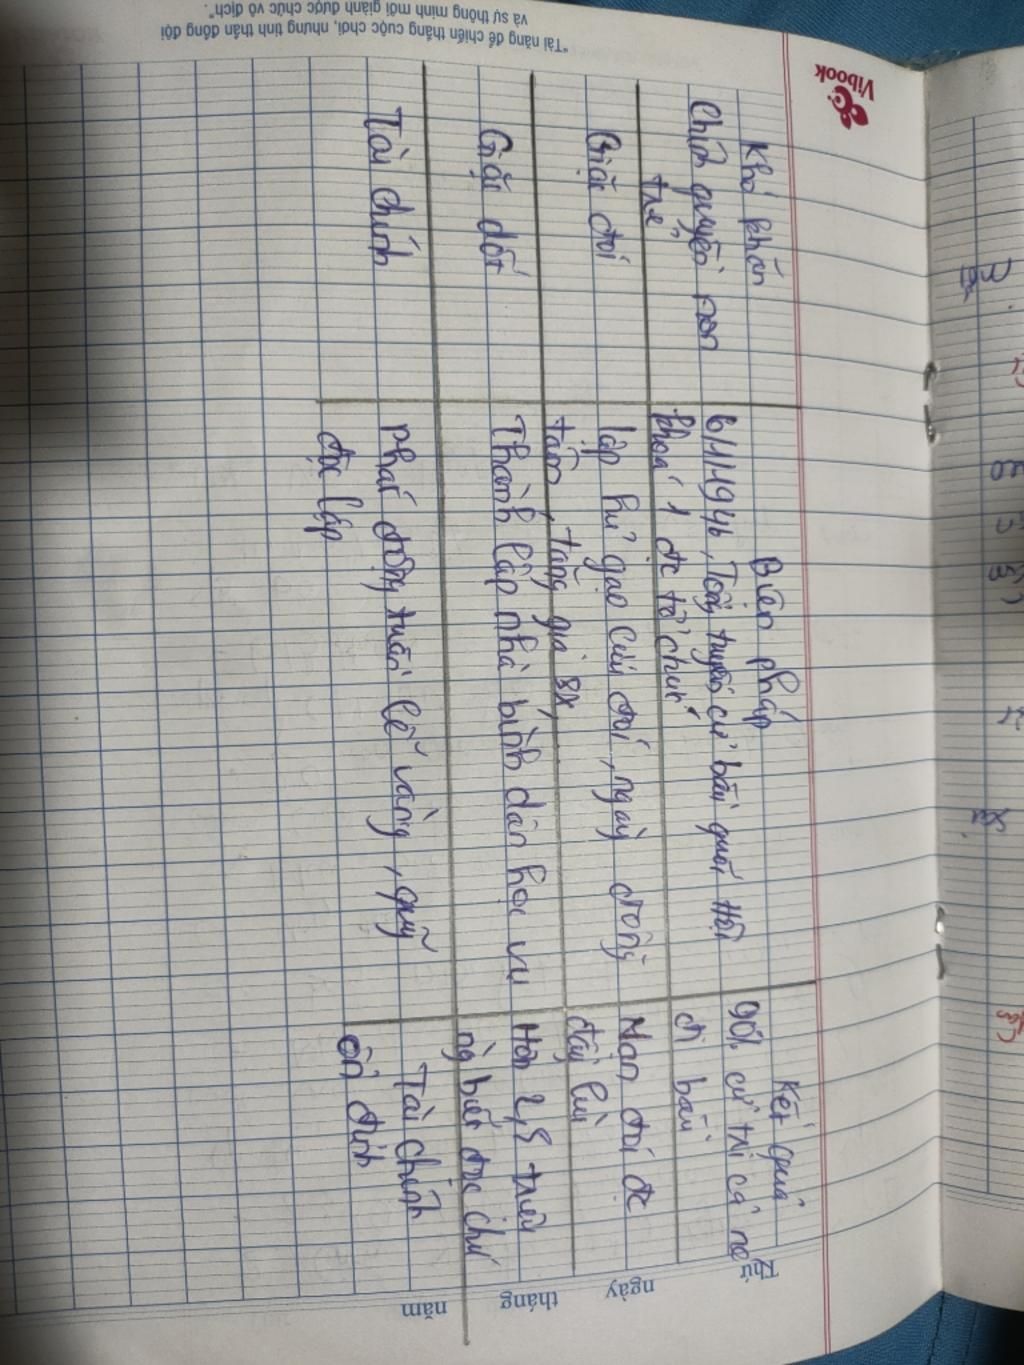 Vibook
Thứ
ngày
tháng
năm
Khó khăn
Biện pháp
Kết quả
Chính quyền non
trẻ
6/1/1946, Tổng tuyển cử bầu quốc Hội
khoá 1 đc tổ chức
90% cử tri cả nc
đi bầu
Giặc đói
lập hũ gạo cứu đói, ngày đồng
tâm, tăng gia sx,
Nạn đói đc
đẩy lùi
Giặc dốt
Thành lập nhà bình dân học vụ
Hơn 2,5 triệu
ng biết đọc chữ
Tài chính
phát động tuần lễ vàng, quỹ
độc lập
Tài chính
ổn định
"Tài năng để chiến thắng cuộc chơi, nhưng tinh thần đồng đội
và sự thông minh mới giành được chức vô địch".